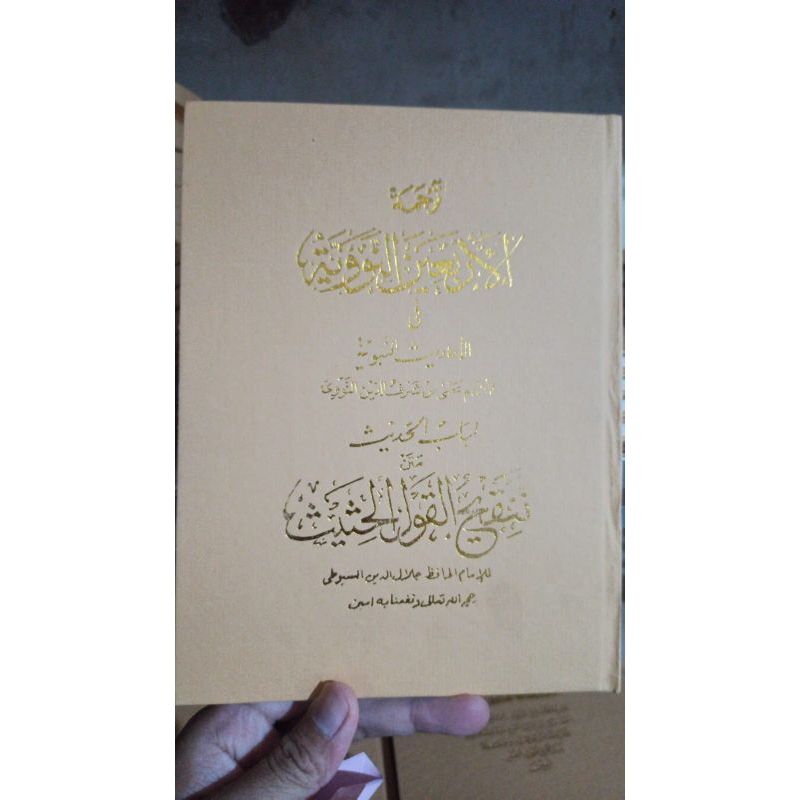 ترجمة
الأربعين النووية
فى
الأحاديث النبوية
للإمام يحيى بن شرف الدين النووى
لباب الحديث
متن
تنقيح القول الحثيث
للإمام الحافظ جلال الدين السيوطى
رحمه الله تعالى ونفعنا به امين